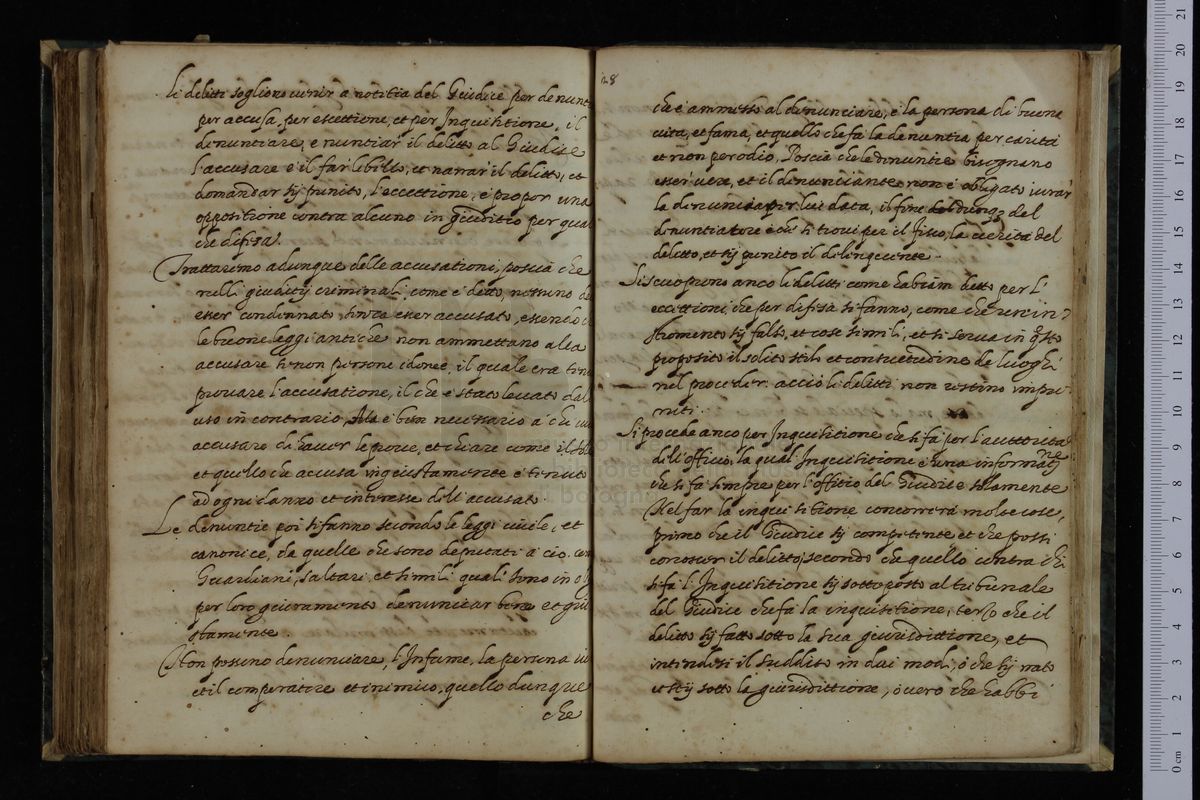 li delitti sogliono venir a notitia del Giudice per denunt
per accusa, per escettione, et per Inquisitione, il
denuntiare, e nuntiar il delitto al Giudice
l'accusare è il far libello, et narrar il delitto, et
domandar sij punito, l'eccettione, è propor una
oppositione contra alcuno in giuditio per qual
che difesa.
Trattaremo adunque delle accusationi, poscia che
nelli giuditij criminali, come è detto, nessuno de
esser condennato, senza esser accusato, essendo ch
le buone leggi antiche non ammettano alla
accusare se non persone idonee, il quale era ten
provare l'accusatione, il che è stato levato dal
uso in contrario, Ma è ben necessario à chi
accusare di haver le prove, et chiare come il Sol
et quello che accusa ingiustamente è tenuto
ad ogni danno et interesse dell' accusato.
Le denuntie poi si fanno secondo le leggi civile, et
canonice, da quelle che sono deputati à ciò, com
Guardiani, saltari, et simili quali sono in ob
per loro giuramento denuntiar bene et giu
stamente.
Non possono denunciare, l'Infame, la persona
et il comperatore et inimico, quello dunque
che
28
che è ammesso al denunciare, è la persona di buona
vita, et fama, et quello che fa la denuntia per carità
et non per odio, Poscia che le denuntie bisognano
esser vere, et il denunciante non è obligato iurar
la denuncia per lui data, il fine del
denuntiatore è che si trovi per il fisco, la verità del
delitto, et sij punito il delinquente.
Si scuoprono anco li delitti come habiam detto per l'
eccittioni, che per difesa si fanno, come che un in=
stromento sij falso, et cose simili, et si serva in qsto
proposito il solito stile et consuetudine de luoghi
nel proceder, acciò li delitti non restino impu=
niti.
Si procede anco per Inquisitione che si fa per l'auttorità
dell'officio, la qual Inquisitione è una informatne
che si fa sempre per l'offitio del Giudice solamente
Nel far la inquisitione concorrerà molte cose,
primo che il Giudice sij competente et che possi
conoscer il delitto, secondo che quello contra chi
si fa l'Inquisitione sij sottoposto al tribunale
del Giudice che fa la inquisitione, terzo che il
delitto sij fatto sotto la sua giuridittione, et
intendesi il suddito in dui modi, ò che sij nato
et stij sotto la giurisdittione, ò vero che habbi